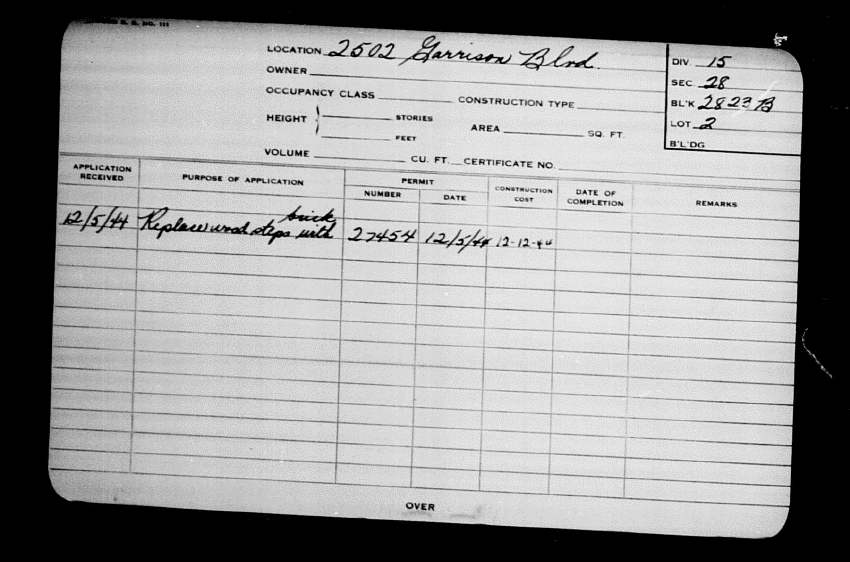 B. D. NO. 111
LOCATION 2502 Garrison Blvd.
OWNER
OCCUPANCY CLASS CONSTRUCTION TYPE
HEIGHT STORIES
FEET
AREA SQ. FT.
VOLUME CU. FT. CERTIFICATE NO.
DIV. 15
SEC. 28
BL'K 2823 B
LOT 2
B'L'DG
APPLICATION RECEIVED PURPOSE OF APPLICATION PERMIT NUMBER DATE CONSTRUCTION COST DATE OF COMPLETION REMARKS
brick
12/5/44 Replace wood steps with 27454 12/5/44 12-12-44
OVER